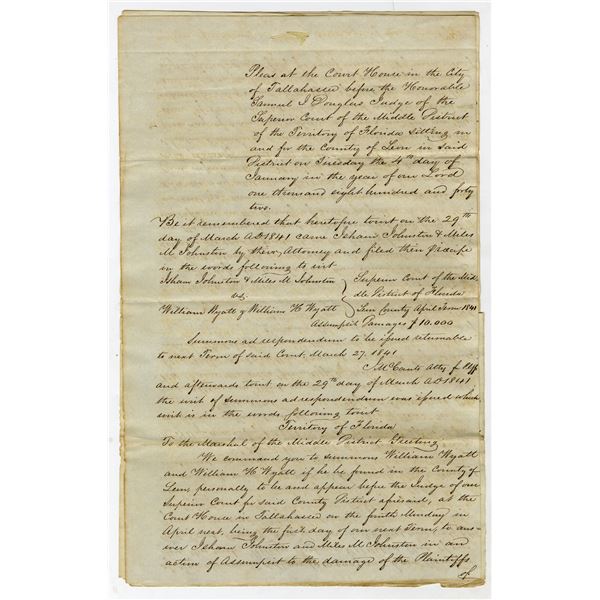 Pleas at the Court House in the City
of Tallahassee before the Honorable
Samuel J Douglas Judge of the
Superior Court of the Middle District
of the Territory of Florida sitting in
and for the County of Leon in said
District on Tuesday the 4th day of
January in the year of our Lord
one thousand eight hundred and forty
two.
Be it remembered that heretofore towit on the 29th
day of March AD 1841 came Isham Johnston & Miles
M Johnston by their Attorney and filed their Precipe
in the words following to wit
Isham Johnston & Miles M Johnston
vs.
William Wyatt & William H Wyatt
Superior Court of the Mid-
dle District of Florida
Leon County April Term 1841
Assumpsit Damages $10.000
Summons ad respondendum to be issued returnable
to next Term of said Court. March 27. 1841
McCants Atty f Plff
and afterwards towit on the 29th day of March AD 1841
the writ of summons ad respondendum was issued which
writ is in the words following towit
Territory of Florida
To the Marshal of the Middle District Greeting
We command you to summons William Wyatt
and William H Wyatt if he be found in the County of
Leon, personally to be and appear before the Judge of our
Superior Court for said County District aforesaid, at the
Court House in Tallahassee on the fourth Monday in
April next, being the first day of our next Term, to ans-
wer Isham Johnston and Miles M Johnston in an
action of Assumpsit to the damage of the Plaintiffs
of